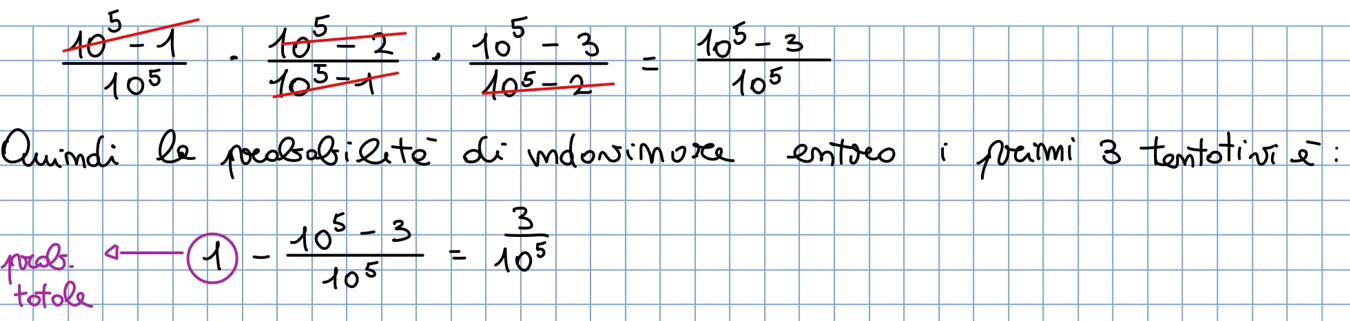 (10^5 - 1)/10^5 · (10^5 - 2)/(10^5 - 1) · (10^5 - 3)/(10^5 - 2) = (10^5 - 3)/10^5
Quindi la probabilità di indovinare entro i primi 3 tentativi è:
1 - (10^5 - 3)/10^5 = 3/10^5
prob.
totale